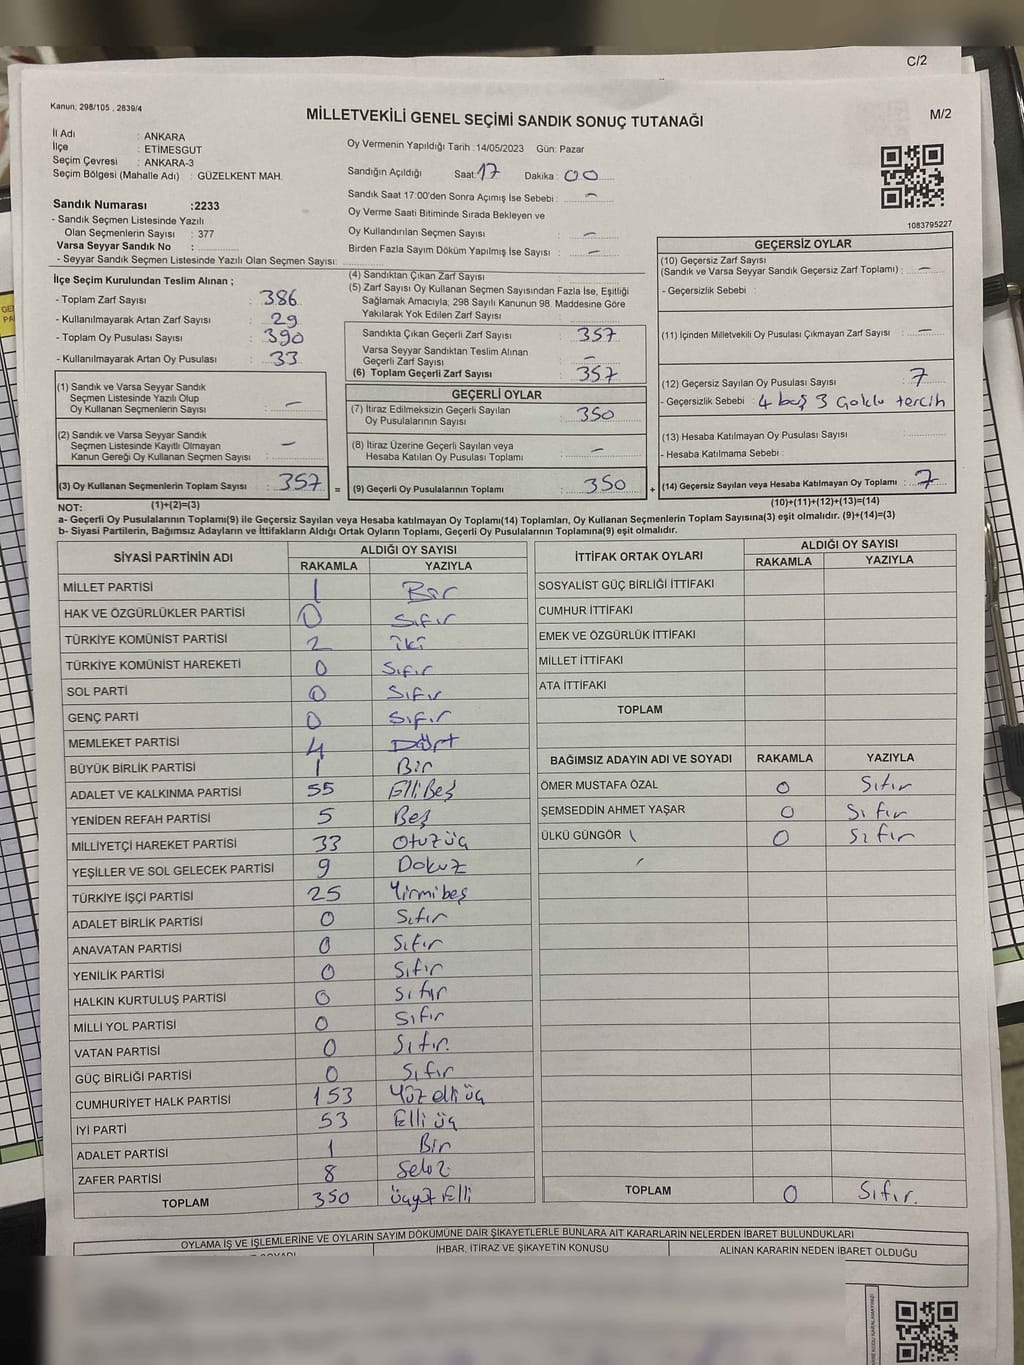 C/2
Kanun; 298/105 , 2839/4
MİLLETVEKİLİ GENEL SEÇİMİ SANDIK SONUÇ TUTANAĞI
M/2
İl Adı : ANKARA
İlçe : ETİMESGUT
Seçim Çevresi : ANKARA-3
Seçim Bölgesi (Mahalle Adı) : GÜZELKENT MAH.
Oy Vermenin Yapıldığı Tarih : 14/05/2023 Gün: Pazar
Sandığın Açıldığı Saat: 17 Dakika : 00
Sandık Saat 17:00'den Sonra Açımış İse Sebebi : –
Oy Verme Saati Bitiminde Sırada Bekleyen ve
Oy Kullandırılan Seçmen Sayısı : –
Birden Fazla Sayım Döküm Yapılmış İse Sayısı : –
1083795227
Sandık Numarası :2233
- Sandık Seçmen Listesinde Yazılı
Olan Seçmenlerin Sayısı : 377
Varsa Seyyar Sandık No :
- Seyyar Sandık Seçmen Listesinde Yazılı Olan Seçmen Sayısı:
İlçe Seçim Kurulundan Teslim Alınan ;
- Toplam Zarf Sayısı : 386
- Kullanılmayarak Artan Zarf Sayısı : 29
- Toplam Oy Pusulası Sayısı : 390
- Kullanılmayarak Artan Oy Pusulası : 33
(1) Sandık ve Varsa Seyyar Sandık
Seçmen Listesinde Yazılı Olup
Oy Kullanan Seçmenlerin Sayısı : –
(2) Sandık ve Varsa Seyyar Sandık
Seçmen Listesinde Kayıtlı Olmayan
Kanun Gereği Oy Kullanan Seçmen Sayısı : –
(3) Oy Kullanan Seçmenlerin Toplam Sayısı : 357 =
(1)+(2)=(3)
(4) Sandıktan Çıkan Zarf Sayısı :
(5) Zarf Sayısı Oy Kullanan Seçmen Sayısından Fazla İse, Eşitliği
Sağlamak Amacıyla; 298 Sayılı Kanunun 98. Maddesine Göre
Yakılarak Yok Edilen Zarf Sayısı :
Sandıkta Çıkan Geçerli Zarf Sayısı : 357
Varsa Seyyar Sandıktan Teslim Alınan
Geçerli Zarf Sayısı : –
(6) Toplam Geçerli Zarf Sayısı : 357
GEÇERLİ OYLAR
(7) İtiraz Edilmeksizin Geçerli Sayılan
Oy Pusulalarının Sayısı : 350
(8) İtiraz Üzerine Geçerli Sayılan veya
Hesaba Katılan Oy Pusulası Toplamı : –
(9) Geçerli Oy Pusulalarının Toplamı : 350 +
GEÇERSİZ OYLAR
(10) Geçersiz Zarf Sayısı
(Sandık ve Varsa Seyyar Sandık Geçersiz Zarf Toplamı) : –
- Geçersizlik Sebebi :
(11) İçinden Milletvekili Oy Pusulası Çıkmayan Zarf Sayısı : –
(12) Geçersiz Sayılan Oy Pusulası Sayısı : 7
- Geçersizlik Sebebi : 4 boş 3 Çoklu tercih
(13) Hesaba Katılmayan Oy Pusulası Sayısı :
- Hesaba Katılmama Sebebi :
(14) Geçersiz Sayılan veya Hesaba Katılmayan Oy Toplamı : 7
(10)+(11)+(12)+(13)=(14)
NOT:
a- Geçerli Oy Pusulalarının Toplamı(9) ile Geçersiz Sayılan veya Hesaba katılmayan Oy Toplamı(14) Toplamları, Oy Kullanan Seçmenlerin Toplam Sayısına(3) eşit olmalıdır. (9)+(14)=(3)
b- Siyasi Partilerin, Bağımsız Adayların ve İttifakların Aldığı Ortak Oyların Toplamı, Geçerli Oy Pusulalarının Toplamına(9) eşit olmalıdır.
SİYASİ PARTİNİN ADI ALDIĞI OY SAYISI
RAKAMLA YAZIYLA
MİLLET PARTİSİ 1 Bir
HAK VE ÖZGÜRLÜKLER PARTİSİ 0 Sıfır
TÜRKİYE KOMÜNİST PARTİSİ 2 iki
TÜRKİYE KOMÜNİST HAREKETİ 0 Sıfır
SOL PARTİ 0 Sıfır
GENÇ PARTİ 0 Sıfır
MEMLEKET PARTİSİ 4 Dört
BÜYÜK BİRLİK PARTİSİ 1 Bir
ADALET VE KALKINMA PARTİSİ 55 ElliBeş
YENİDEN REFAH PARTİSİ 5 Beş
MİLLİYETÇİ HAREKET PARTİSİ 33 Otuzüç
YEŞİLLER VE SOL GELECEK PARTİSİ 9 Dokuz
TÜRKİYE İŞÇİ PARTİSİ 25 Yirmibeş
ADALET BİRLİK PARTİSİ 0 Sıfır
ANAVATAN PARTİSİ 0 Sıfır
YENİLİK PARTİSİ 0 Sıfır
HALKIN KURTULUŞ PARTİSİ 0 Sıfır
MİLLİ YOL PARTİSİ 0 Sıfır
VATAN PARTİSİ 0 Sıfır.
GÜÇ BİRLİĞİ PARTİSİ 0 Sıfır
CUMHURİYET HALK PARTİSİ 153 Yüz elli üç
İYİ PARTİ 53 Elli üç
ADALET PARTİSİ 1 Bir
ZAFER PARTİSİ 8 Sekiz
TOPLAM 350 üçyüz Elli
İTTİFAK ORTAK OYLARI ALDIĞI OY SAYISI
RAKAMLA YAZIYLA
SOSYALİST GÜÇ BİRLİĞİ İTTİFAKI
CUMHUR İTTİFAKI
EMEK VE ÖZGÜRLÜK İTTİFAKI
MİLLET İTTİFAKI
ATA İTTİFAKI
TOPLAM
BAĞIMSIZ ADAYIN ADI VE SOYADI RAKAMLA YAZIYLA
ÖMER MUSTAFA ÖZAL 0 Sıfır
ŞEMSEDDİN AHMET YAŞAR 0 Sıfır
ÜLKÜ GÜNGÖR 0 Sıfır
TOPLAM 0 Sıfır.
OYLAMA İŞ VE İŞLEMLERİNE VE OYLARIN SAYIM DÖKÜMÜNE DAİR ŞİKAYETLERLE BUNLARA AİT KARARLARIN NELERDEN İBARET BULUNDUKLARI
İHBAR, İTİRAZ VE ŞİKAYETİN KONUSU ALINAN KARARIN NEDEN İBARET OLDUĞU